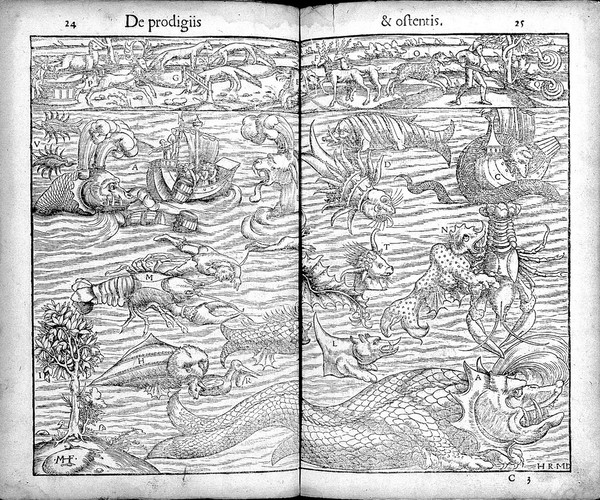 24 De prodigiis
& ostentis. 25
G
O
V
A
D
C
T
N
M
L
H
R
A
I
MF
H R MD
C 3